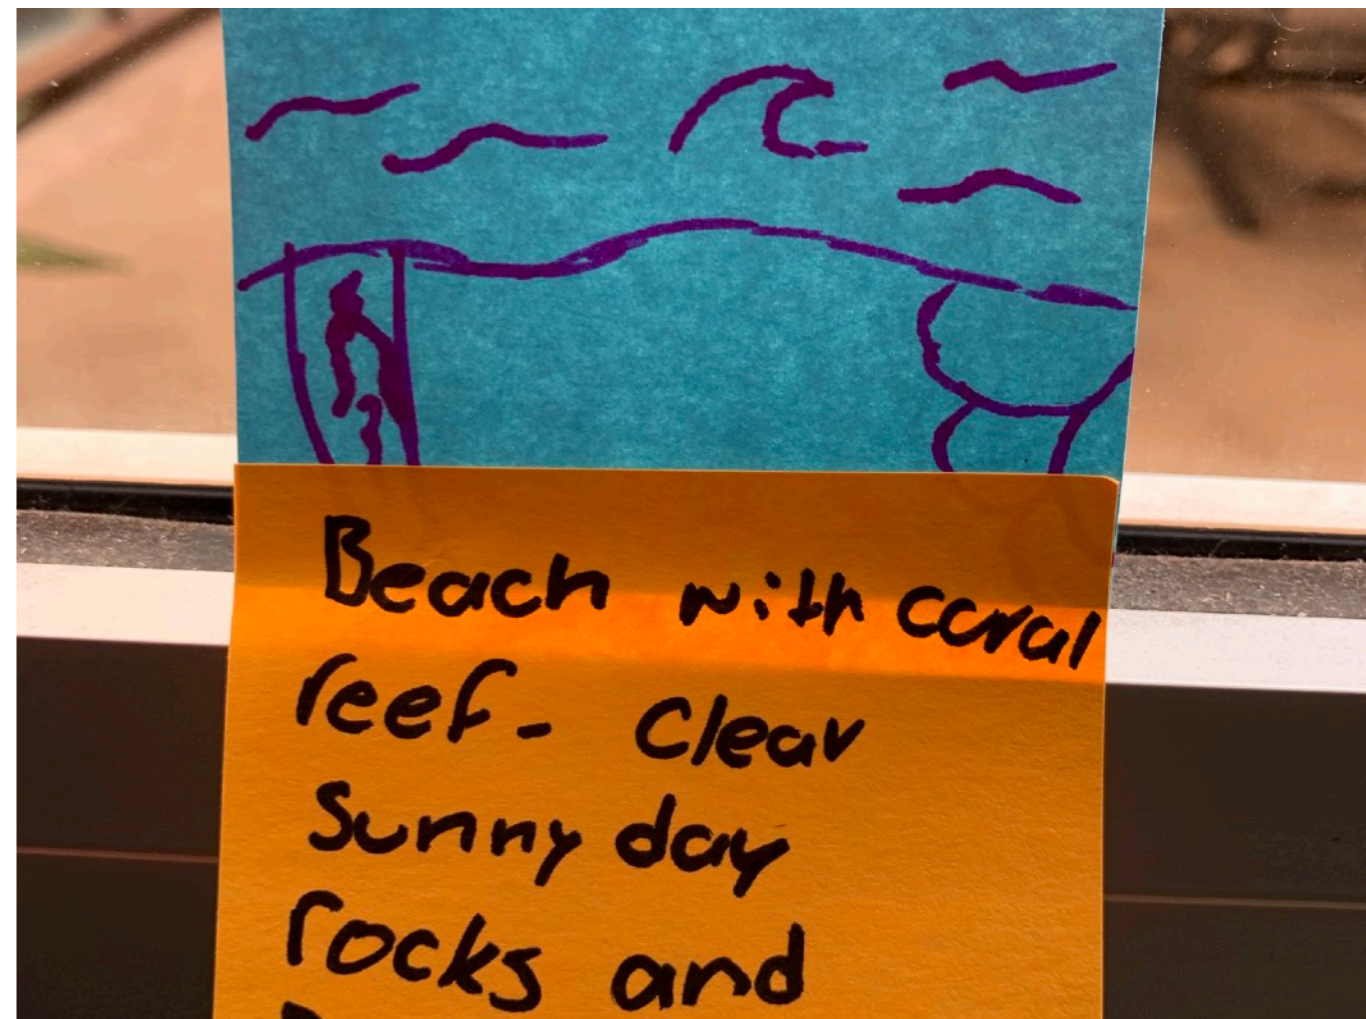 Beach with coral
reef- Clear
Sunny day
rocks and